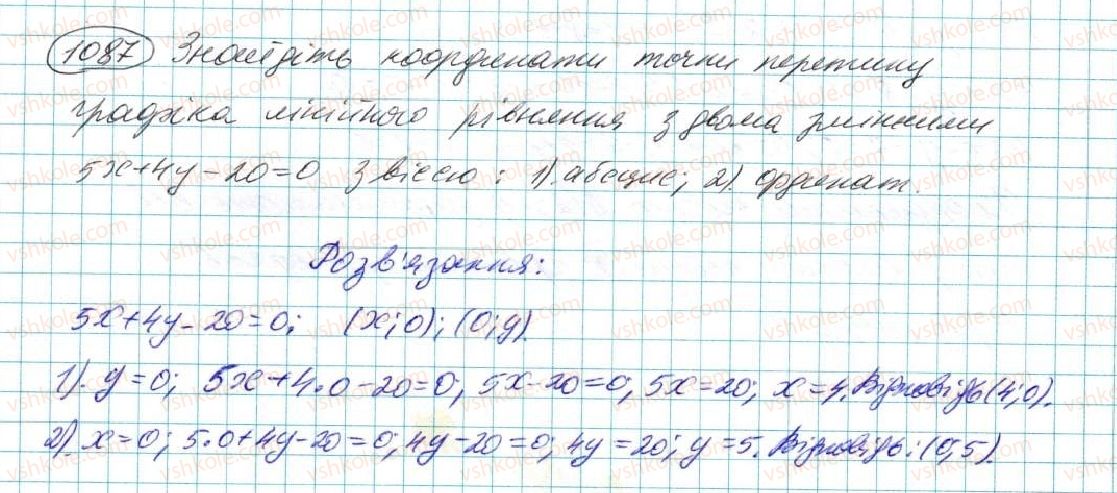 1087 Знайдіть координати точки перетину
графіка лінійного рівняння з двома змінними
5x+4y-20=0 з віссю: 1). абсцис; 2). ординат.
Розв'язання:
5x+4y-20=0; (x;0); (0;y)
1). y=0; 5x+4·0-20=0; 5x-20=0; 5x=20; x=4. Відповідь (4;0).
2). x=0; 5·0+4y-20=0; 4y-20=0; 4y=20; y=5. Відповідь: (0;5).